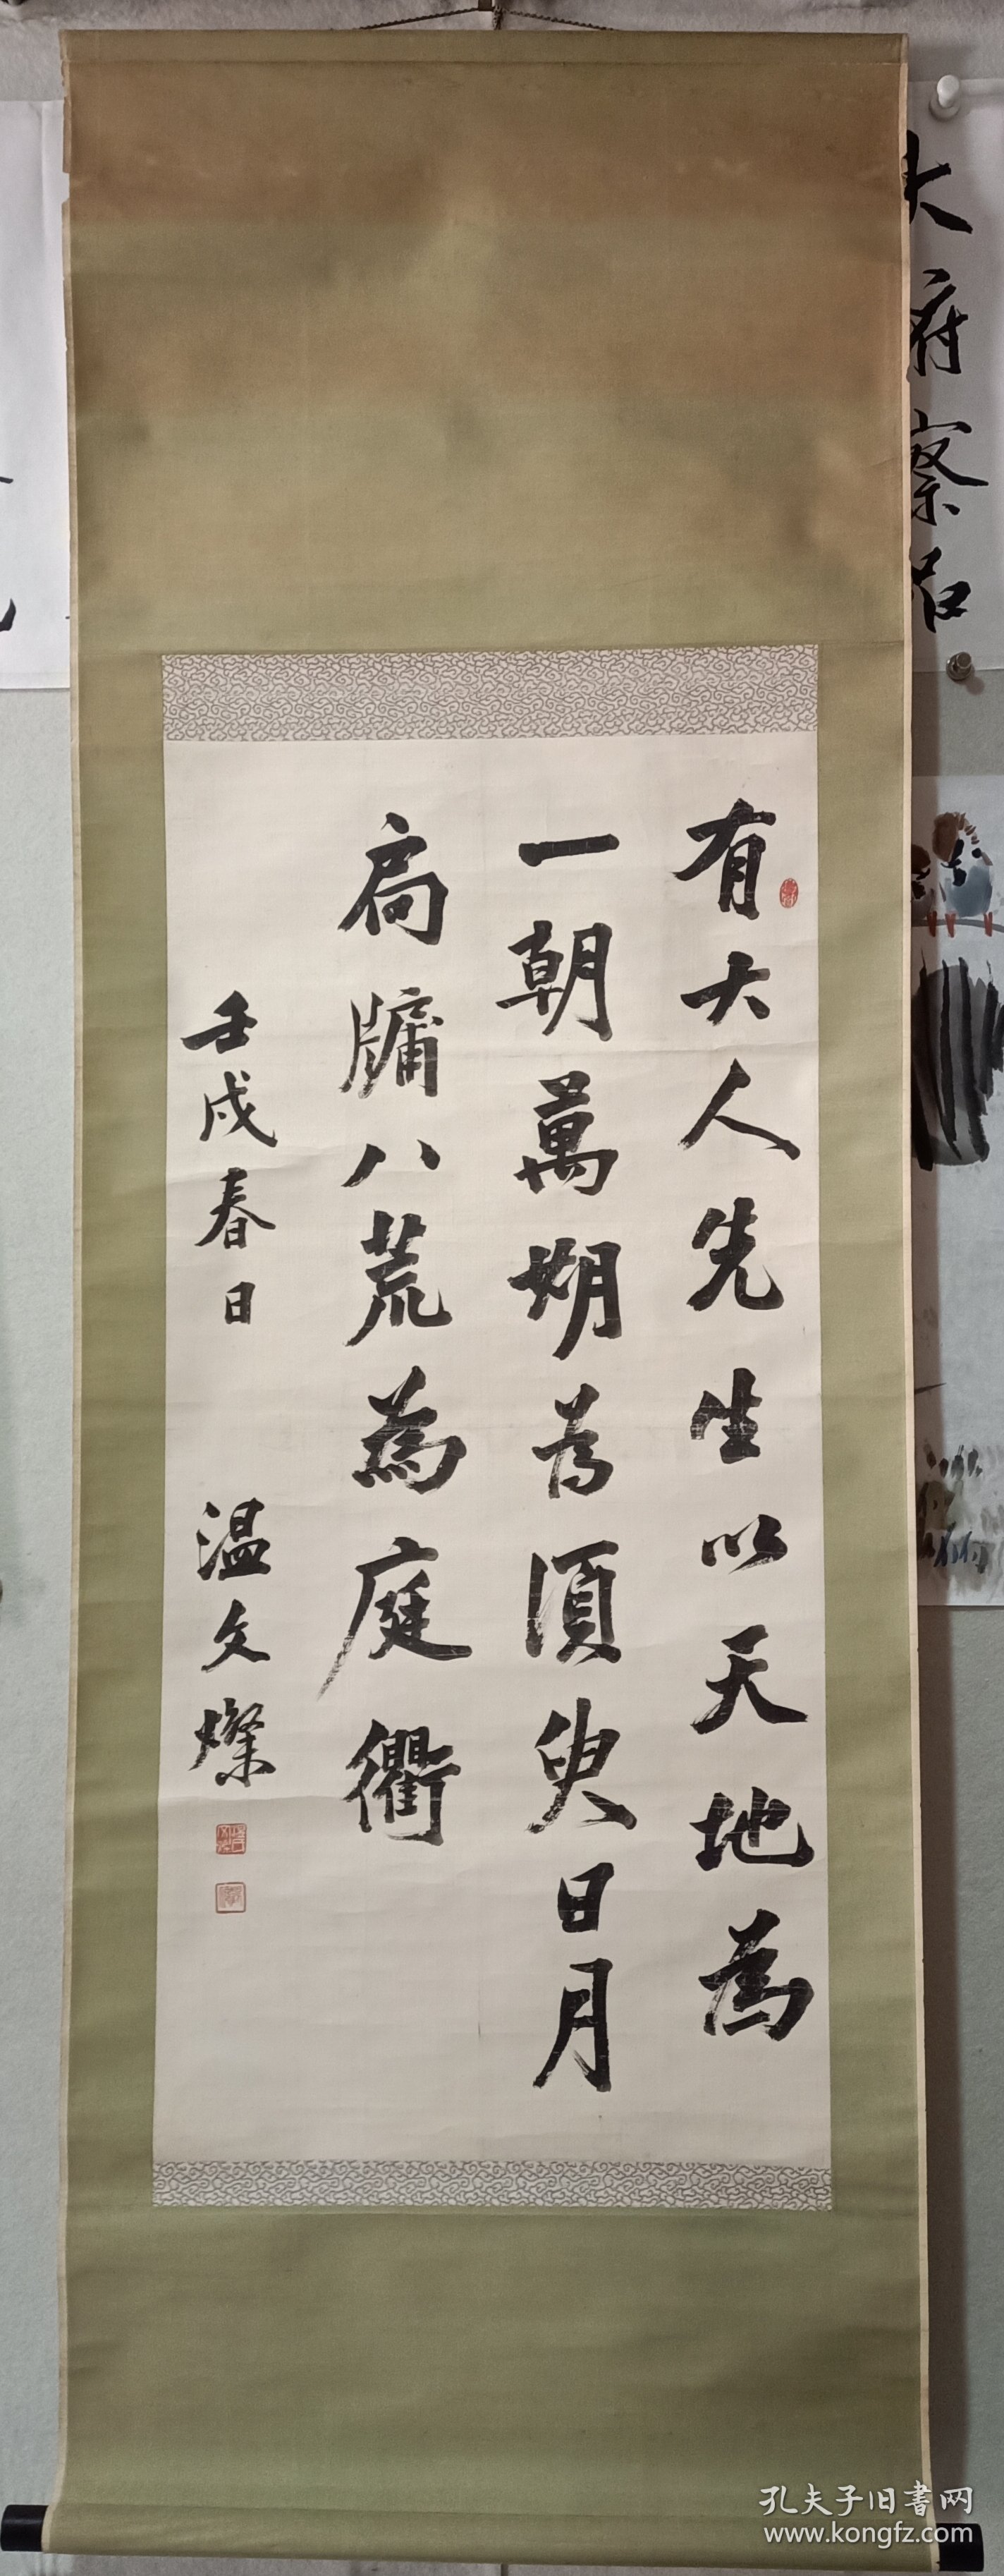 有大人先生以天地為
一朝萬期為須臾日月
扃牖八荒為庭衢
壬戌春日
温文燦
大府察君
孔夫子旧書网
www.kongfz.com